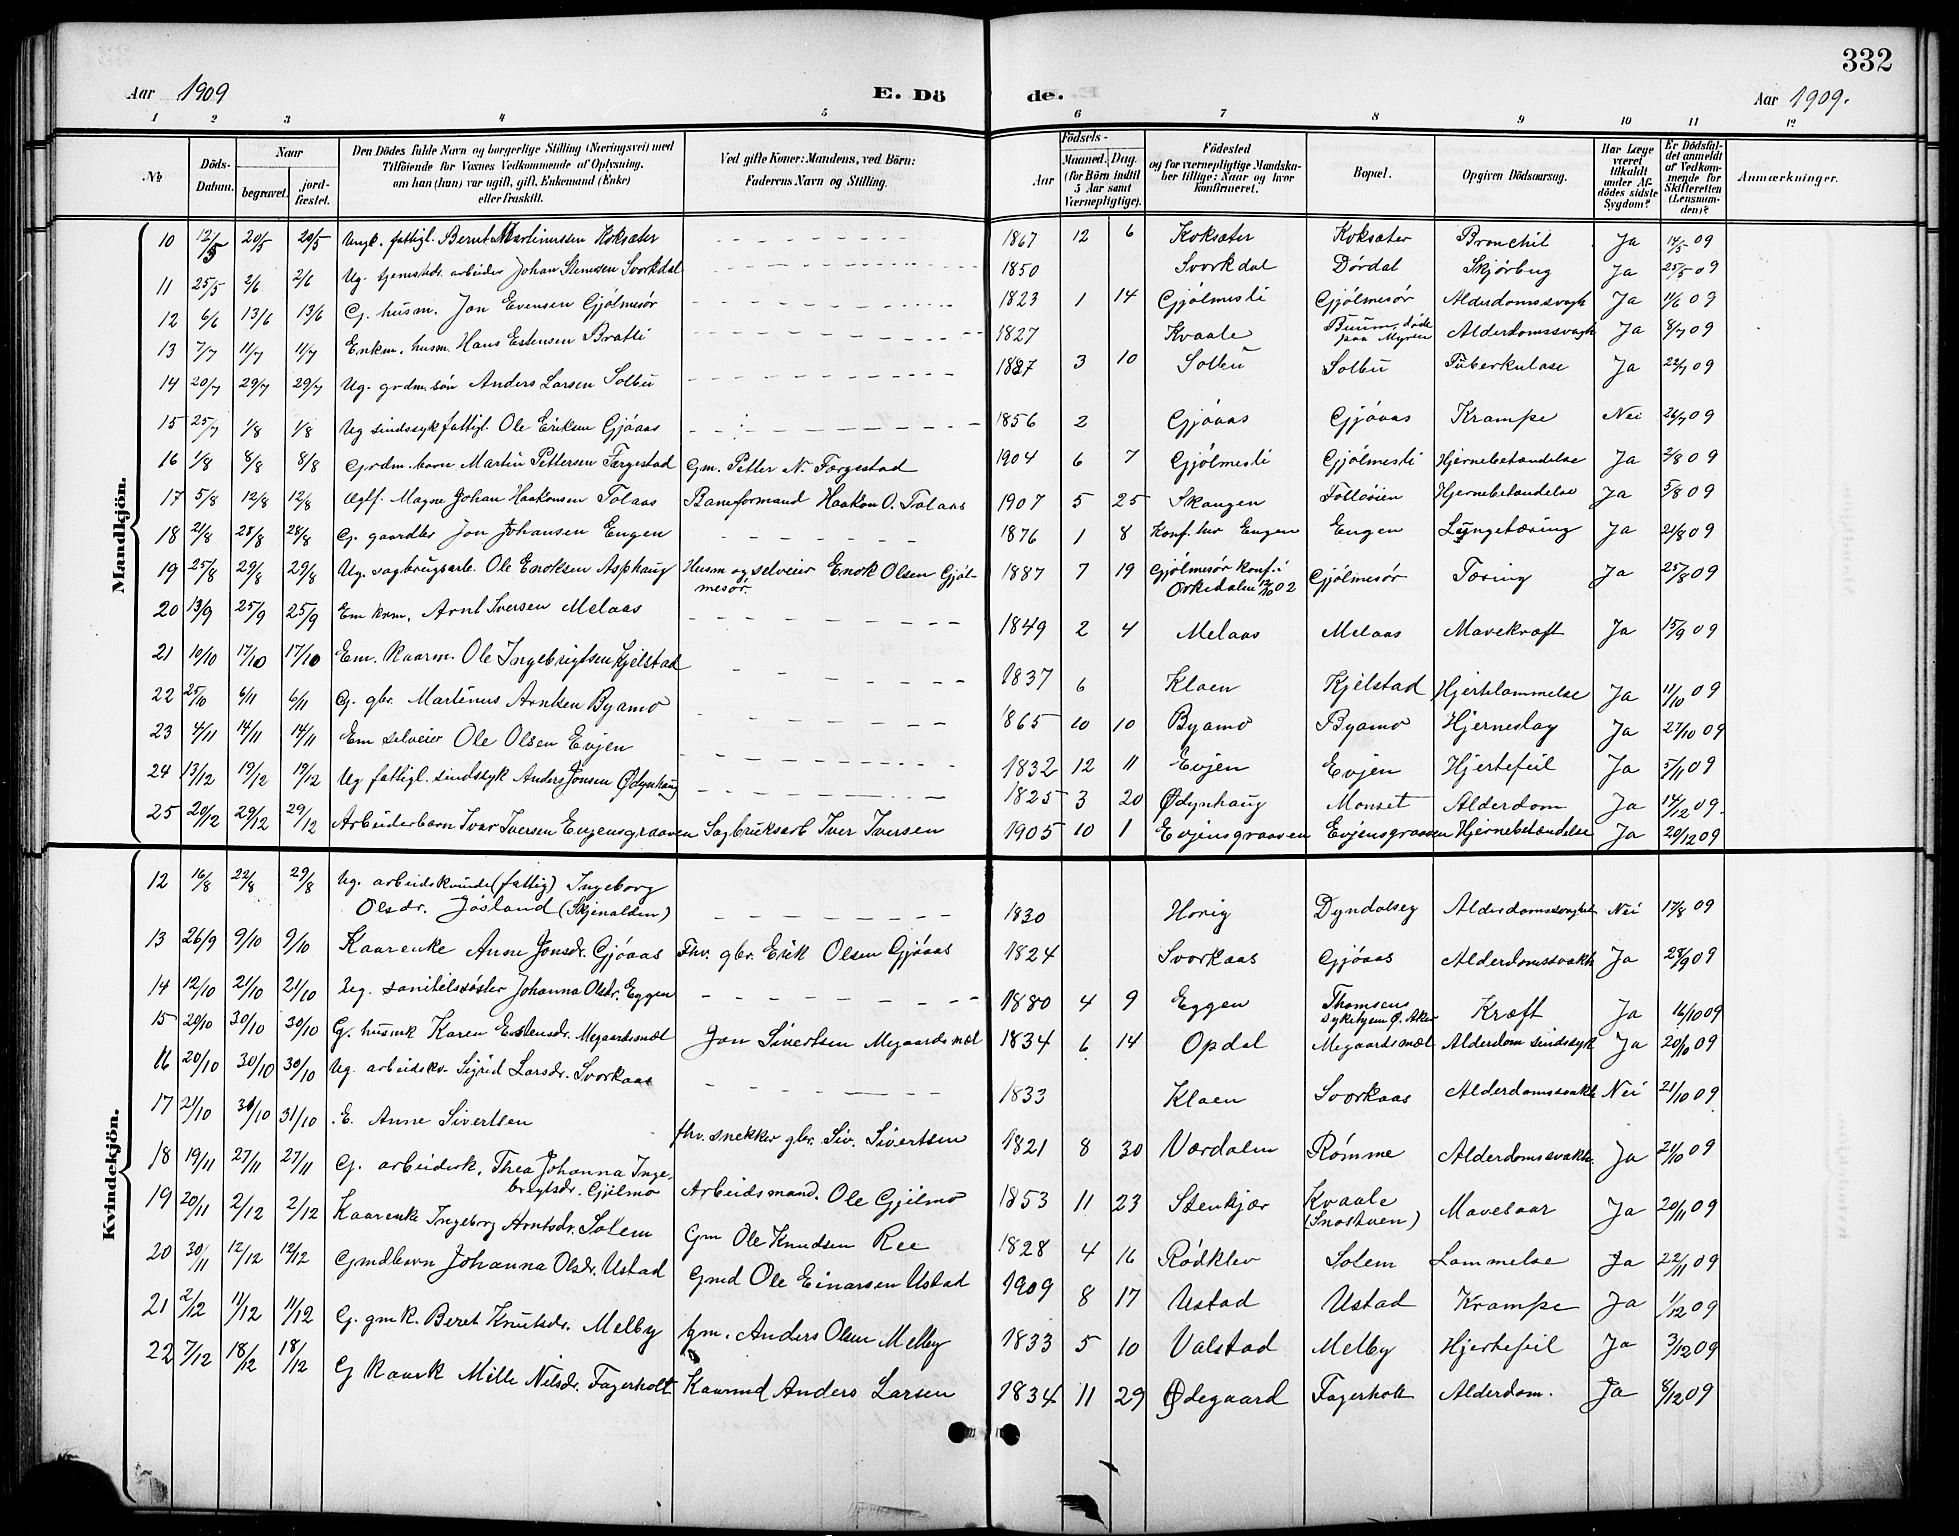 332
Aar 1909 E. Dö de. Aar 1909.
1 2 3 4 5 6 7 8 9 10 11 12
№
Döds-Datum.
Naar
begravet.
jord-fæstet.
Den Dödes fulde Navn og borgerlige Stilling (Næringsvei) med
Tilföiende for Voxnes Vedkommende af Oplysning,
om han (hun) var ugift, gift, Enkemand (Enke)
eller fraskilt.
Ved gifte Koner: Mandens, ved Börn:
Faderens Navn og Stilling.
Födsels-
Aar
Maaned. Dag.
(for Börn indtil
5 Aar samt
Værnepligtige).
Födested
og for værnepligtige Mandska-
ber tillige: Naar og hvor
konfirmeret.
Bopæl.
Opgiven Dödsaarsag.
Har Læge
været
tilkaldt
under Af-
dödes sidste
Sygdom?
Er Dödsfal-
det anmeldt
af Vedkom-
mende for
Skifteretten
(Lensman-
den)?
Anmærkninger.
Mandkjön.
10 12/5 20/5 20/5 Ungk. fattigl. Bernt Martinussen Koksæter 1867 12 6 Koksæter Koksæter Bronchit Ja 14/5 09
11 25/5 2/6 2/6 Ug. tjenestedr. arbeider Johan Stensen Svorkdal 1850 Svorkdal Dørdal Skjørbug Ja 25/5 09
12 6/6 13/6 13/6 G. husm. Jon Evensen Gjølmesør 1823 1 14 Gjølmesli Gjølmesør Alderdomssvagh Ja 1/6 09
13 7/7 11/7 11/7 Enkm. husm. Hans Estensen Bratli 1827 Kvaale Buum, døde paa Myren Alderdomssvagh Ja 8/7 09
14 20/7 29/7 29/7 Ug. grdm. søn Anders Larsen Solbu 1887 3 10 Solbu Solbu Tuberkulose Ja 22/7 09
15 25/7 1/8 1/8 Ug sindssyk fattigl. Ole Eriksen Gjøaas 1856 2 Gjøaas Gjøaas Krampe Nei 26/7 09
16 1/8 8/8 8/8 Grdm. barn Martin Pettersen Færgestad Gm. Petter N. Færgestad 1904 6 7 Gjølmesli Gjølmesli Hjernebetændelse Ja 2/8 09
17 5/8 12/8 12/8 Ægtf. Magne Johan Haakonsen Solaas Baneformand Haakon O. Solaas 1907 5 25 Skaugen Folløien Hjernebetændelse Ja 5/8 09
18 21/8 28/8 28/8 G. gaardbr Jon Johansen Engen 1876 1 8 Konf. her Engen Engen Lungetæring Ja 21/8 09
19 25/8 29/8 29/8 Ug. sagbrugsarb. Ole Enoksen Asphaug Husm og selveier Enok Olsen Gjøl-mesør. 1887 7 19 Gjølmesør konf. i Orkedalen 12/10 02 Gjølmesør Tæring Ja 25/8 09
20 13/9 25/9 25/9 Em krm. Arnt Iversen Melaas 1849 2 4 Melaas Melaas Mavekræft Ja 15/9 09
21 10/10 17/10 17/10 Em. kaarm. Ole Ingebrigtsen Kjelstad 1837 6 Kloen Kjelstad Hjertelammelse Ja 11/10 09
22 25/10 6/11 6/11 G. gbr. Martinus Arntsen Byamo 1865 10 10 Byamo Byamo Hjerneslag Ja 27/10 09
23 4/11 14/11 14/11 Em selveier Ole Olsen Evjen 1832 12 11 Evjen Evjen Hjertefeil Ja 5/11 09
24 13/12 19/12 19/12 Ug fattigl. sindssyk Anders Jonsen Ødynhaug 1825 3 20 Ødynhaug Monset Alderdom Ja 14/12 09.
25 20/12 29/12 29/12 Arbeiderbarn Ivar Iversen Evjensgraaven Sagbruksarb Iver Iversen 1905 10 1 Evjensgraaven Evjensgraaven Hjernebetændelse Ja 20/12 09
Kvindekjön.
12 16/8 22/8 29/8 Ug. arbeidskvinde (fattig) Ingeborg
Olsdr. Jøsland (Skjenalden) 1830 Horig Dyndalseg Alderdomssvaghet Nei 17/8 09
13 26/9 9/10 9/10 Kaarenke Anne Jonsdr. Gjøaas Fhv. gbr. Erik Olsen Gjøaas 1824 Svorkaas Gjøaas Alderdomssvakh Ja 28/9 09
14 12/10 21/10 21/10 Ug. sanitetssøster Johanna Olsdr. Eggen 1880 4 9 Eggen Thomsens sykehjem Ø. Aker Kræft Ja 16/10 09
15 20/10 30/10 30/10 G. husmk Karen Estensdr. Megaardsmæl Jon Sivertsen Megaardsmæl 1834 6 14 Opdal Megaardsmæl Alderdom sindssyk Ja 20/10 09
16 20/10 30/10 30/10 Ug. arbeidskv. Sigrid Larsdr. Svorkaas 1833 Kloen Svorkaas Alderdomssvakh Nei 21/10 09
17 21/10 31/10 31/10 E. Anne Sivertsen fhv. snekker gbr. Siv. Sivertsen 1821 8 30 Værdalen Rømme Alderdomssvakh. Ja 21/10 09
18 19/11 27/11 27/11 G. arbeiderk. Thea Johanna Inge-
brigtsdr. Gjølmo Arbeidsmand. Ole Gjølmo 1853 11 23 Stenkjær Kvaale (Snostuen) Mavesaar Ja 20/11 09
19 20/11 2/12 2/12 Kaarenke Ingeborg Arntsdr. Solem Gm Ole Knudsen Ree 1828 4 16 Rødklev Solem Lammelse Ja 22/11 09
20 30/11 12/12 12/12 Gmdbarn Johanna Olsdr. Ustad Gmd Ole Einarsen Ustad 1909 8 17 Ustad Ustad Krampe Ja 1/12 09
21 2/12 11/12 11/12 G. gmk. Beret Knutsdr. Melby Gm. Anders Olsen Melby 1833 5 10 Valstad Melby Hjertefeil Ja 3/12 09
22 7/12 18/12 18/12 G kaark Mille Nilsdr. Fagerholt Kaarmd Anders Larsen 1834 11 29 Ødegaard Fagerholt Alderdom. Ja 8/12 09